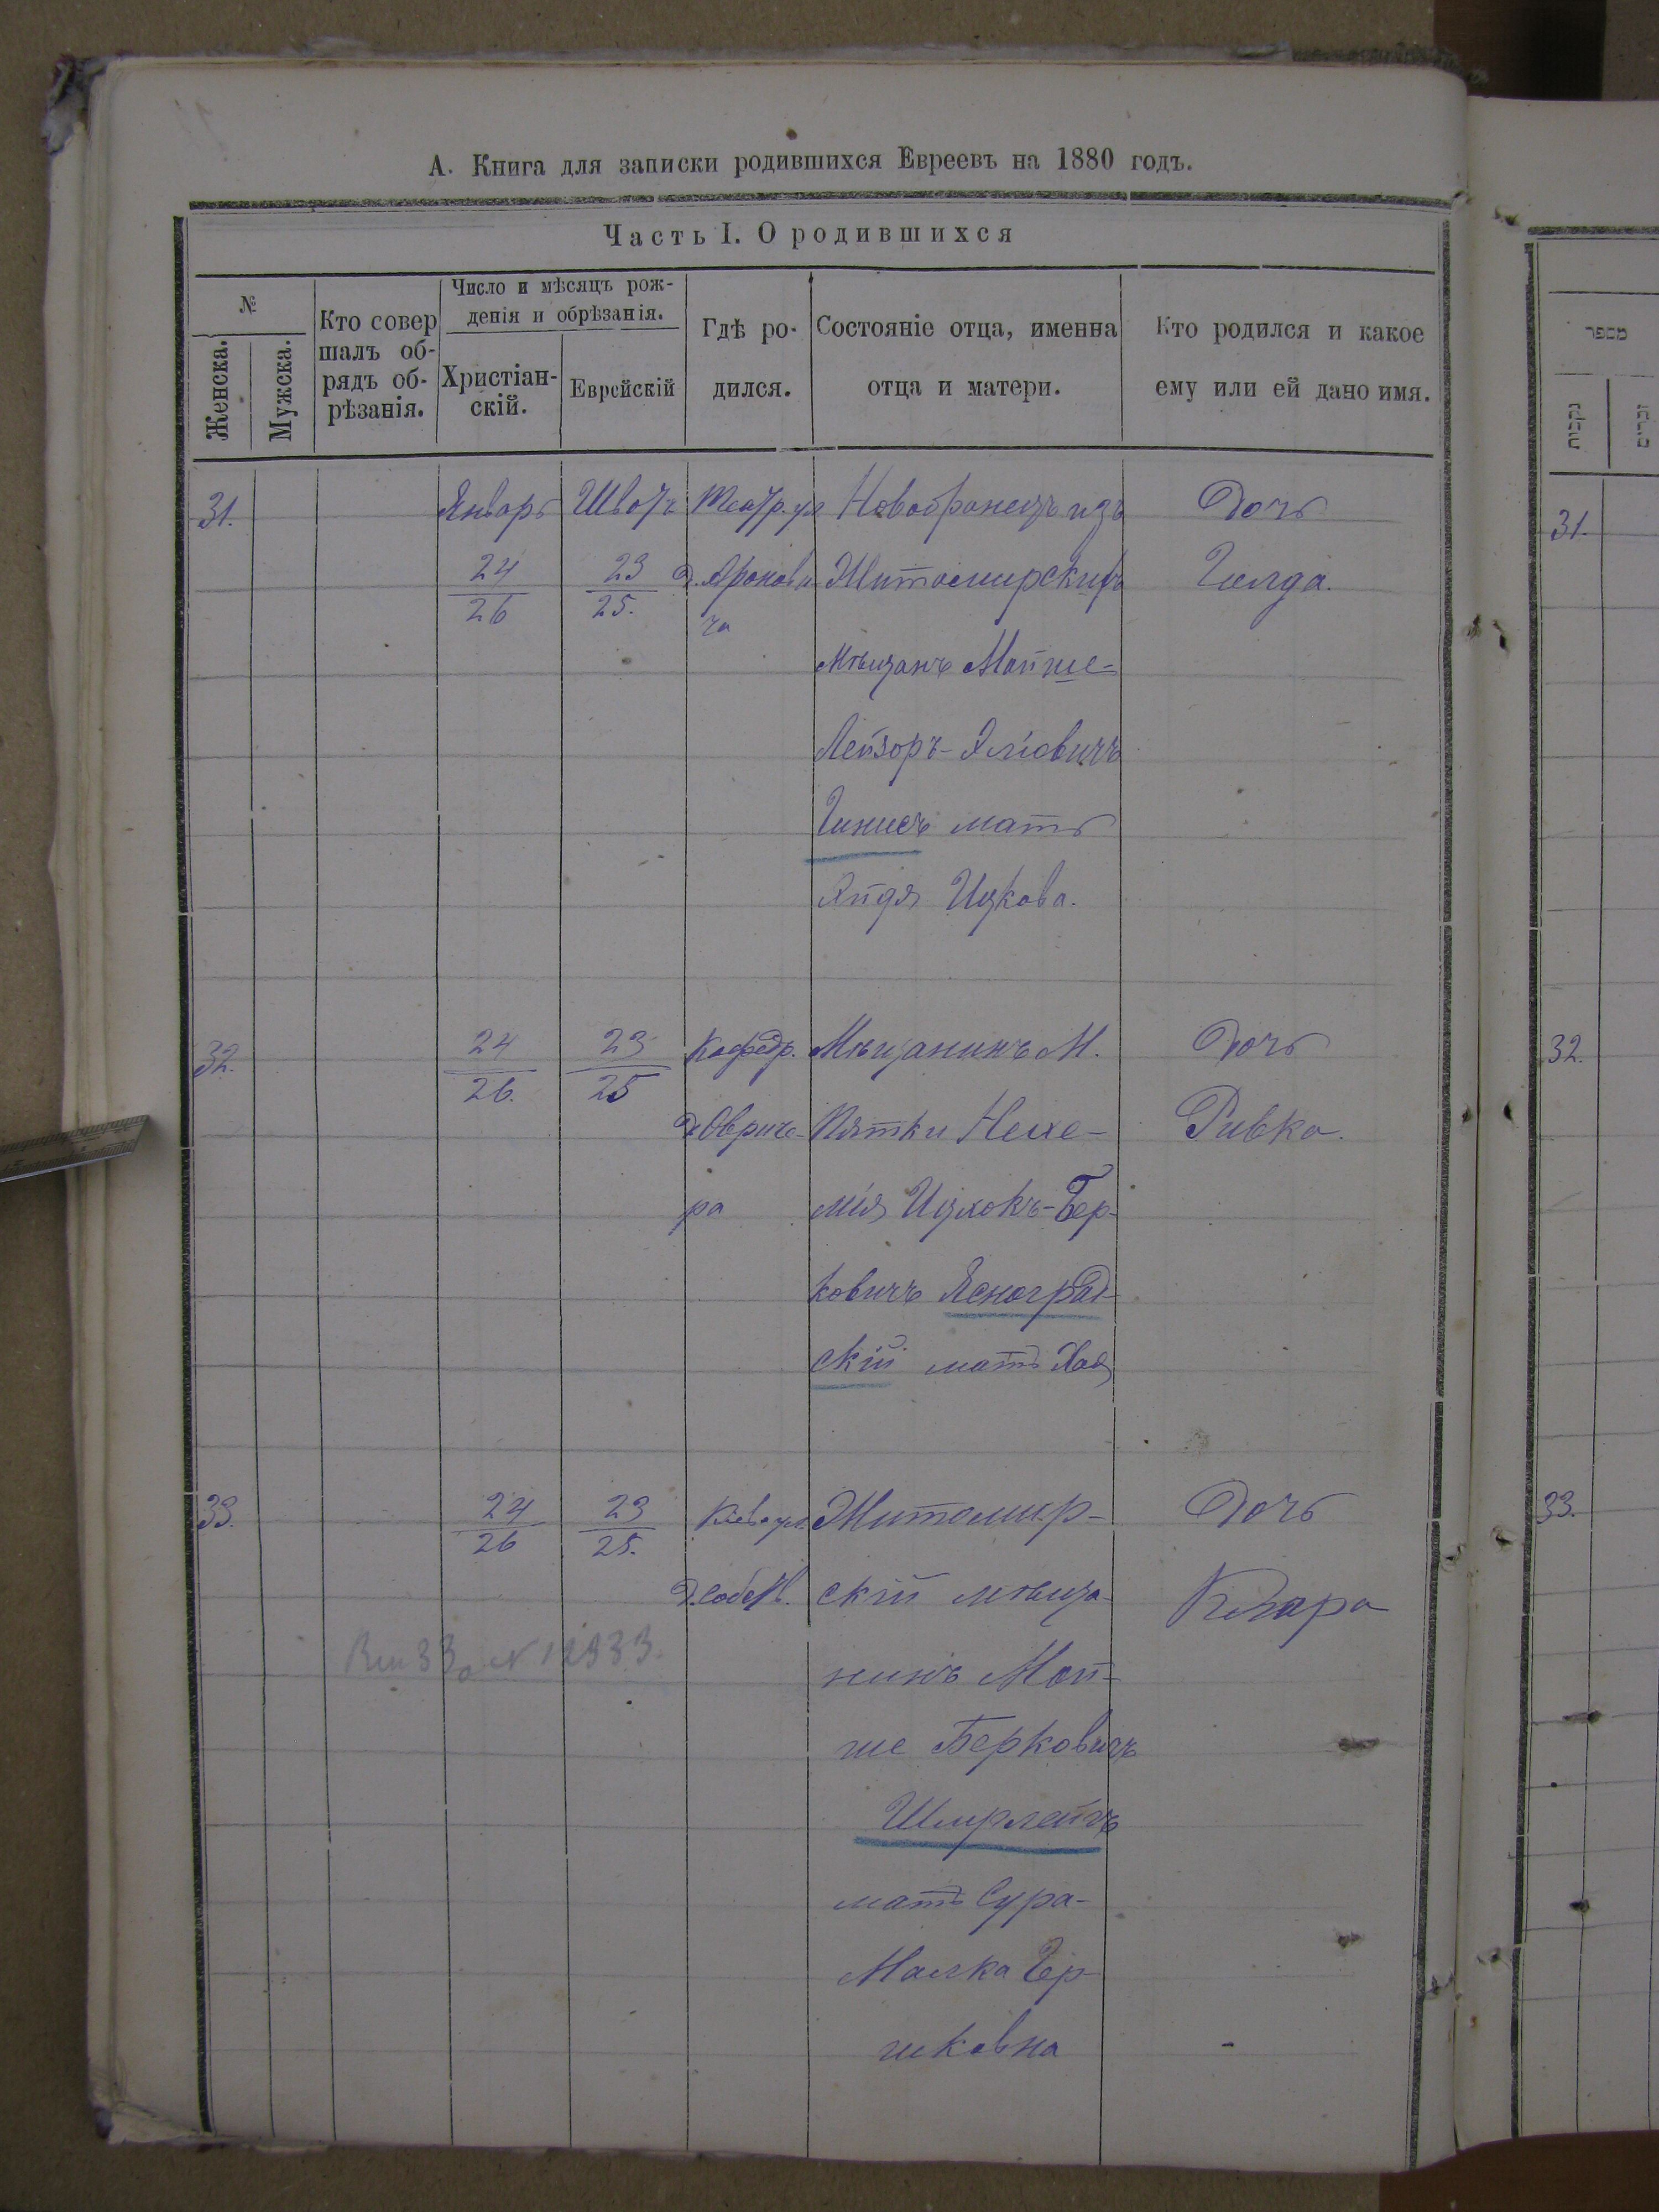 А. Книга для записки родившихся Евреевъ на 1880 годъ.
Часть I. О родившихся
№
Женска.
Мужска.
Кто совер
шалъ об-
рядъ об-
рѣзанія.
Число и мѣсяцъ рож-
денія и обрѣзанія.
Христіан-
скій.
Еврейскій
Гдѣ ро-
дился.
Состояніе отца, именна
отца и матери.
Кто родился и какое
ему или ей дано имя.
31.
Январь
24
26
Швотъ
23
25.
Театр. ул
д. Аронови
ча
Новобранецъ изъ
Житомирскихъ
мѣщанъ Мойше-
Лейзоръ-
мать
Ицкова.
Дочь
Голда.
32.
24
26.
23
25
Кафедр.
д. Овруче-
ра
Мѣщанинъ М.
Пятки Нехе-
мія Ицхокъ-Бер-
ковичъ Ясноград-
скій мать Хая
Дочь
Ривка.
33.
24
26
23
25.
Кіев. ул.
д. собств.
Житомир-
скій мѣща-
нинъ Мой-
ше Берковичъ
мать Сура-
Малка Гер-
шковна
Дочь
Клара
מספר
נקבות
זכרים
31.
32.
33.